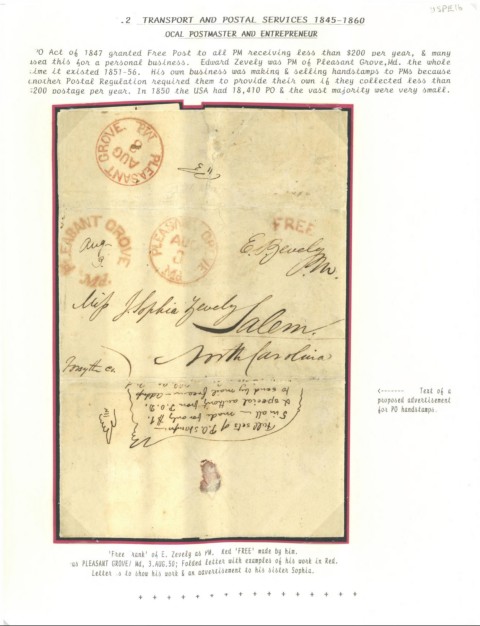 USPB16
.2 TRANSPORT AND POSTAL SERVICES 1845-1860
OCAL POSTMASTER AND ENTREPRENEUR
PO Act of 1847 granted Free Post to all PM receiving less than $200 per year, & many
used this for a personal business. Edward Zevely was PM of Pleasant Grove,Md. the whole
time it existed 1851-56. His own business was making & selling handstamps to PMs because
another Postal Regulation required them to provide their own if they collected less than
$200 postage per year. In 1850 the USA had 18,410 PO & the vast majority were very small.
PLEASANT GROVE Md.
AUG
3
PLEASANT GROVE
Md.
Aug
3
PLEASANT GROVE
AUG
3
Md
FREE
E. Zevely
P.M.
Miss J. Sophia Zevely
Salem.
North Carolina
Forsythe Co
full sets of P.O. stamps
Small made for only $1.
& special authority from P.O.D.
to send by mail free
<------ Text of a
proposed advertisement
for PO handstamps.
'Free rank' of E. Zevely as PM. Red 'FREE' made by him.
as PLEASANT GROVE/ Md, 3.AUG.50; Folded letter with examples of his work in Red.
Letter is to show his work & an advertisement to his sister Sophia.
+ + + + + + + + + + + + + + + +